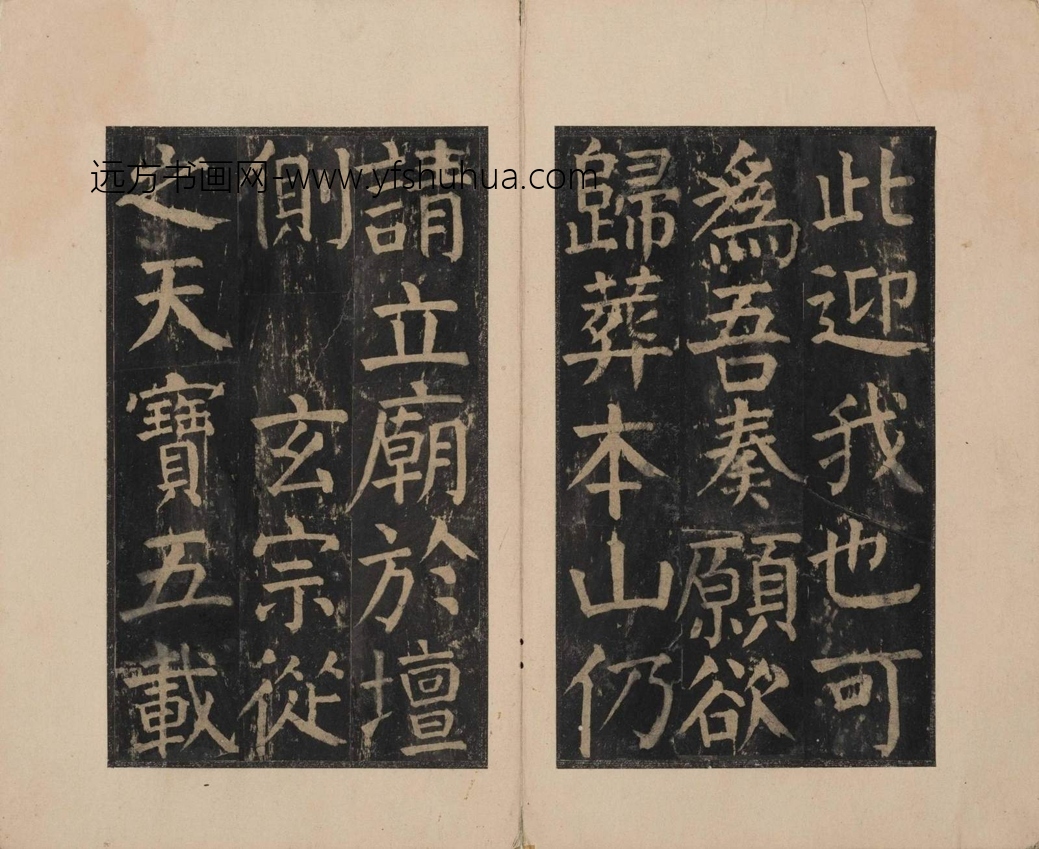 此迎我也可
爲吾奏願欲
歸葬本山仍
請立廟於壇
側 玄宗從
之天寶五載
远方书画网-www.yfshuhua.com